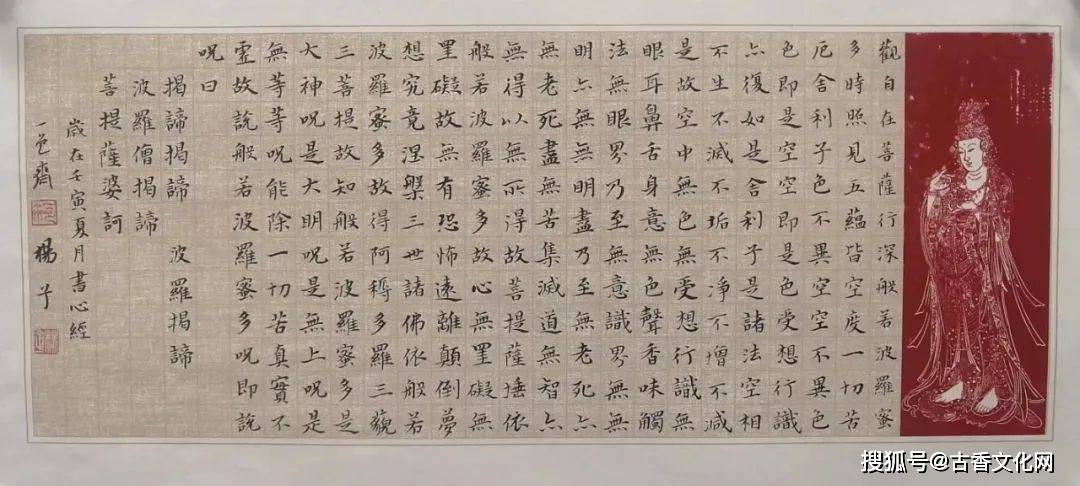 觀自在菩薩行深般若波羅蜜
多時照見五蘊皆空度一切苦
厄舍利子色不異空空不異色
色即是空空即是色受想行識
亦復如是舍利子是諸法空相
不生不滅不垢不淨不增不減
是故空中無色無受想行識無
眼耳鼻舌身意無色聲香味觸
法無眼界乃至無意識界無無
明亦無無明盡乃至無老死亦
無老死盡無苦集滅道無智亦
無得以無所得故菩提薩埵依
般若波羅蜜多故心無罣礙無
罣礙故無有恐怖遠離顛倒夢
想究竟涅槃三世諸佛依般若
波羅蜜多故得阿耨多羅三藐
三菩提故知般若波羅蜜多是
大神呪是大明呪是無上呪是
無等等呪能除一切苦真實不
虛故說般若波羅蜜多呪即說
呪曰
揭諦揭諦 波羅揭諦
波羅僧揭諦
菩提薩婆訶
歲在壬寅夏月書心經
一色齋 楊
搜狐号@古香文化网